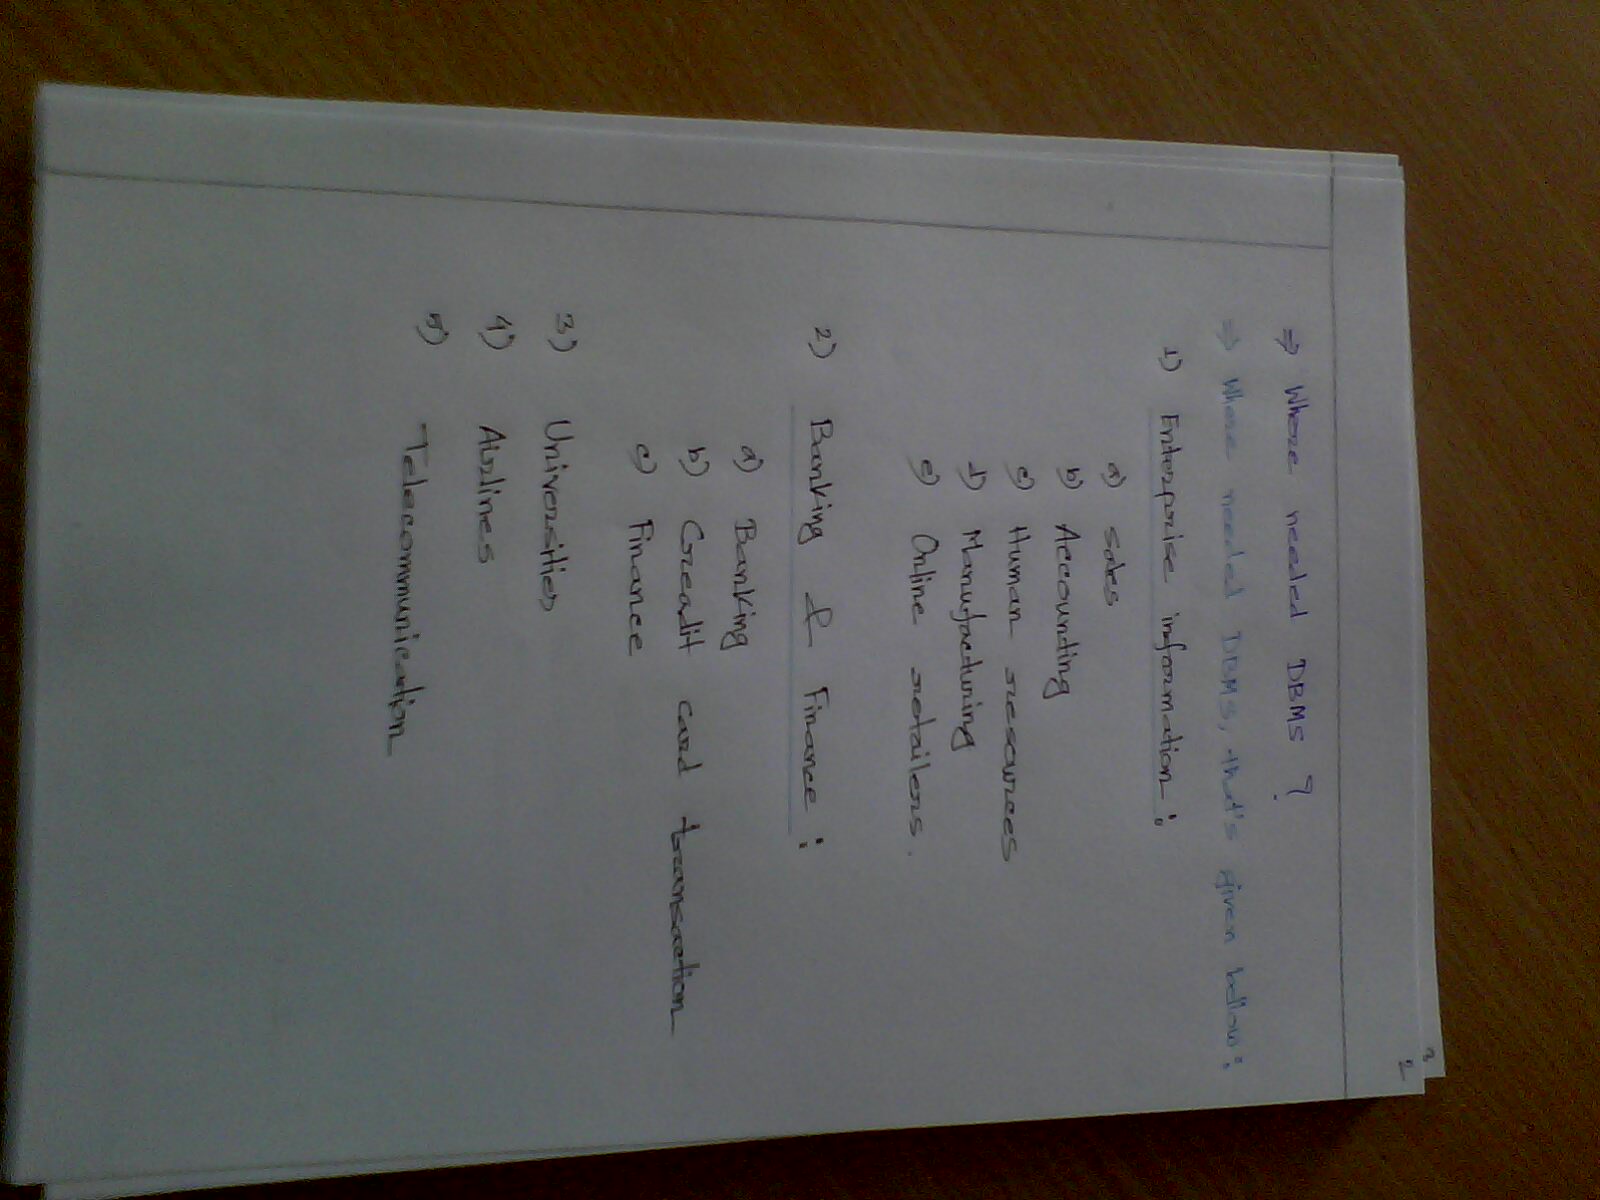 3
2
⇒ Where needed DBMS ?
⇒ Where needed DBMS, that's given bellow:
1) Enterprise information:
a) sales
b) Accounting
c) Human resources
d) Manufacturing
e) Online retailers.
2) Banking & Finance:
a) Banking
b) Creadit card transaction
c) Finance
3) Universities
4) Airlines
5) Telecommunication